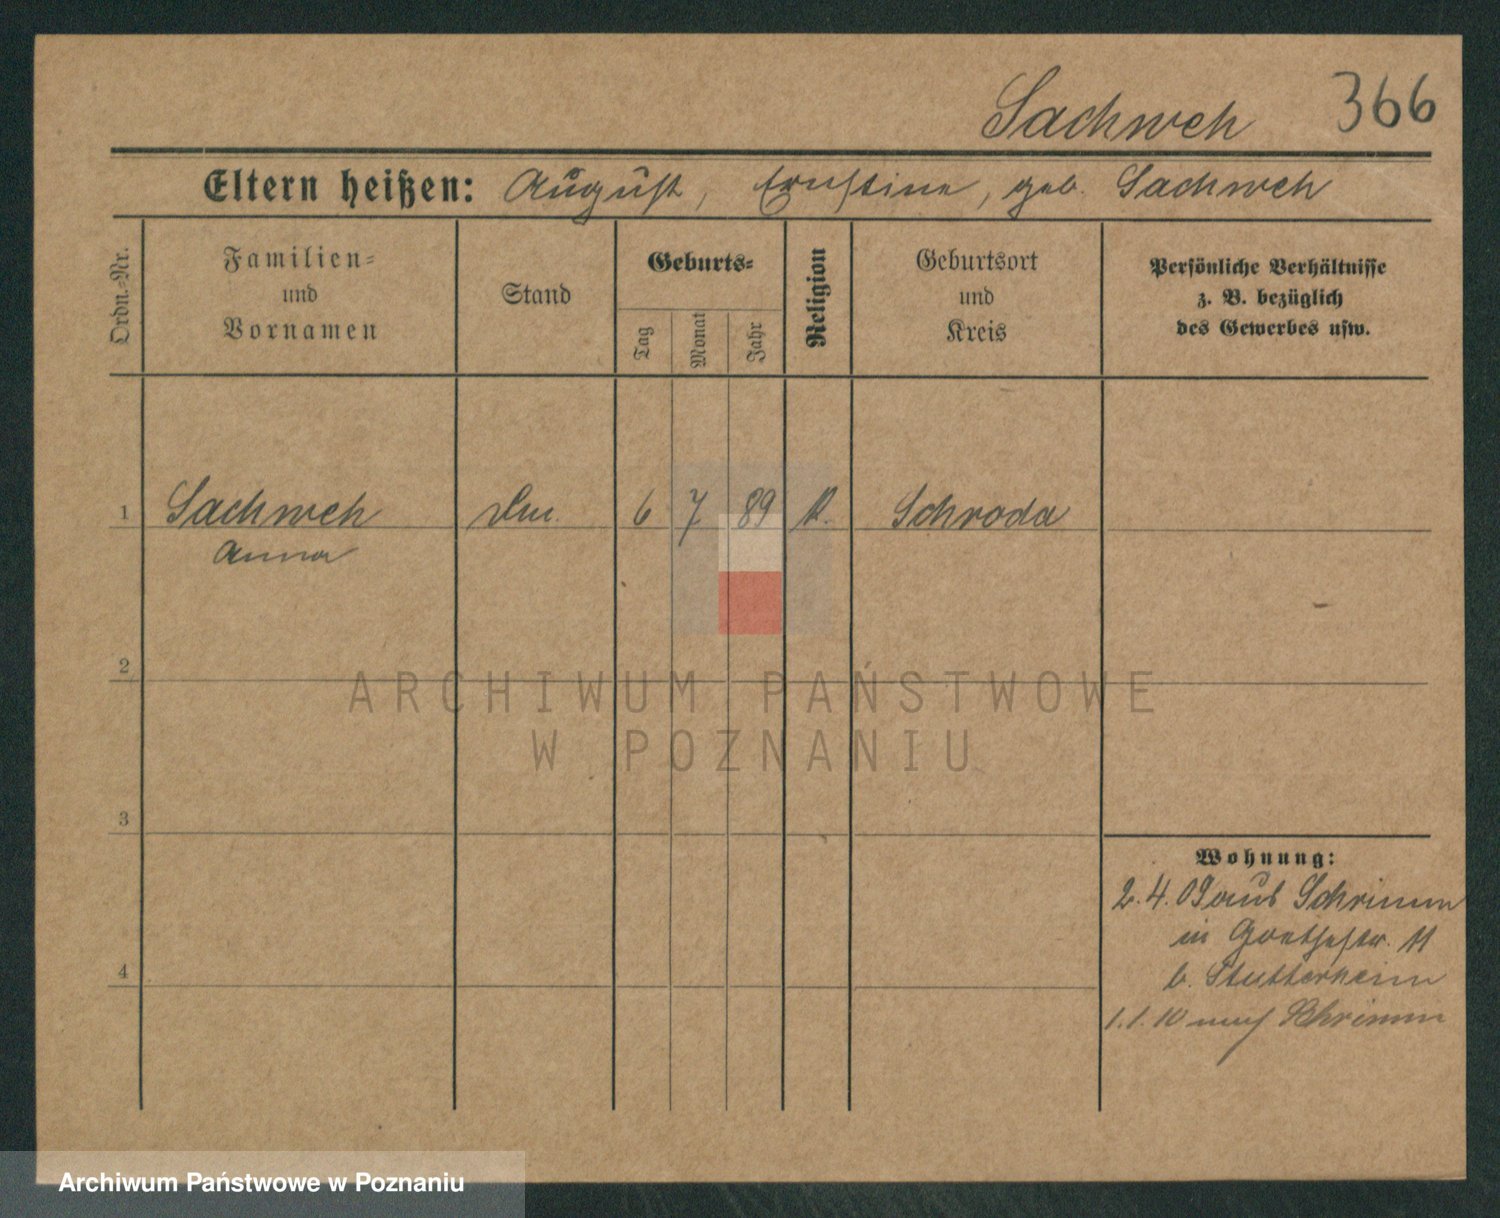 Sachweh 366
Eltern heißen: August, Ernstine, geb. Sachweh
Ordn.-Nr.
Familien- und Vornamen
Stand
Geburts-
Tag
Monat
Jahr
Religion
Geburtsort und Kreis
Persönliche Verhältnisse z. B. bezüglich des Gewerbes usw.
1 Sachweh 6 7 89 K. Schroda
Anna
2
3
4
Wohnung:
2.4.09 aus Schrimm
in Goethestr. 11
b. Stutterheim
1.1.10 nach Schrimm
ARCHIWUM PAŃSTWOWE
W POZNANIU
Archiwum Państwowe w Poznaniu